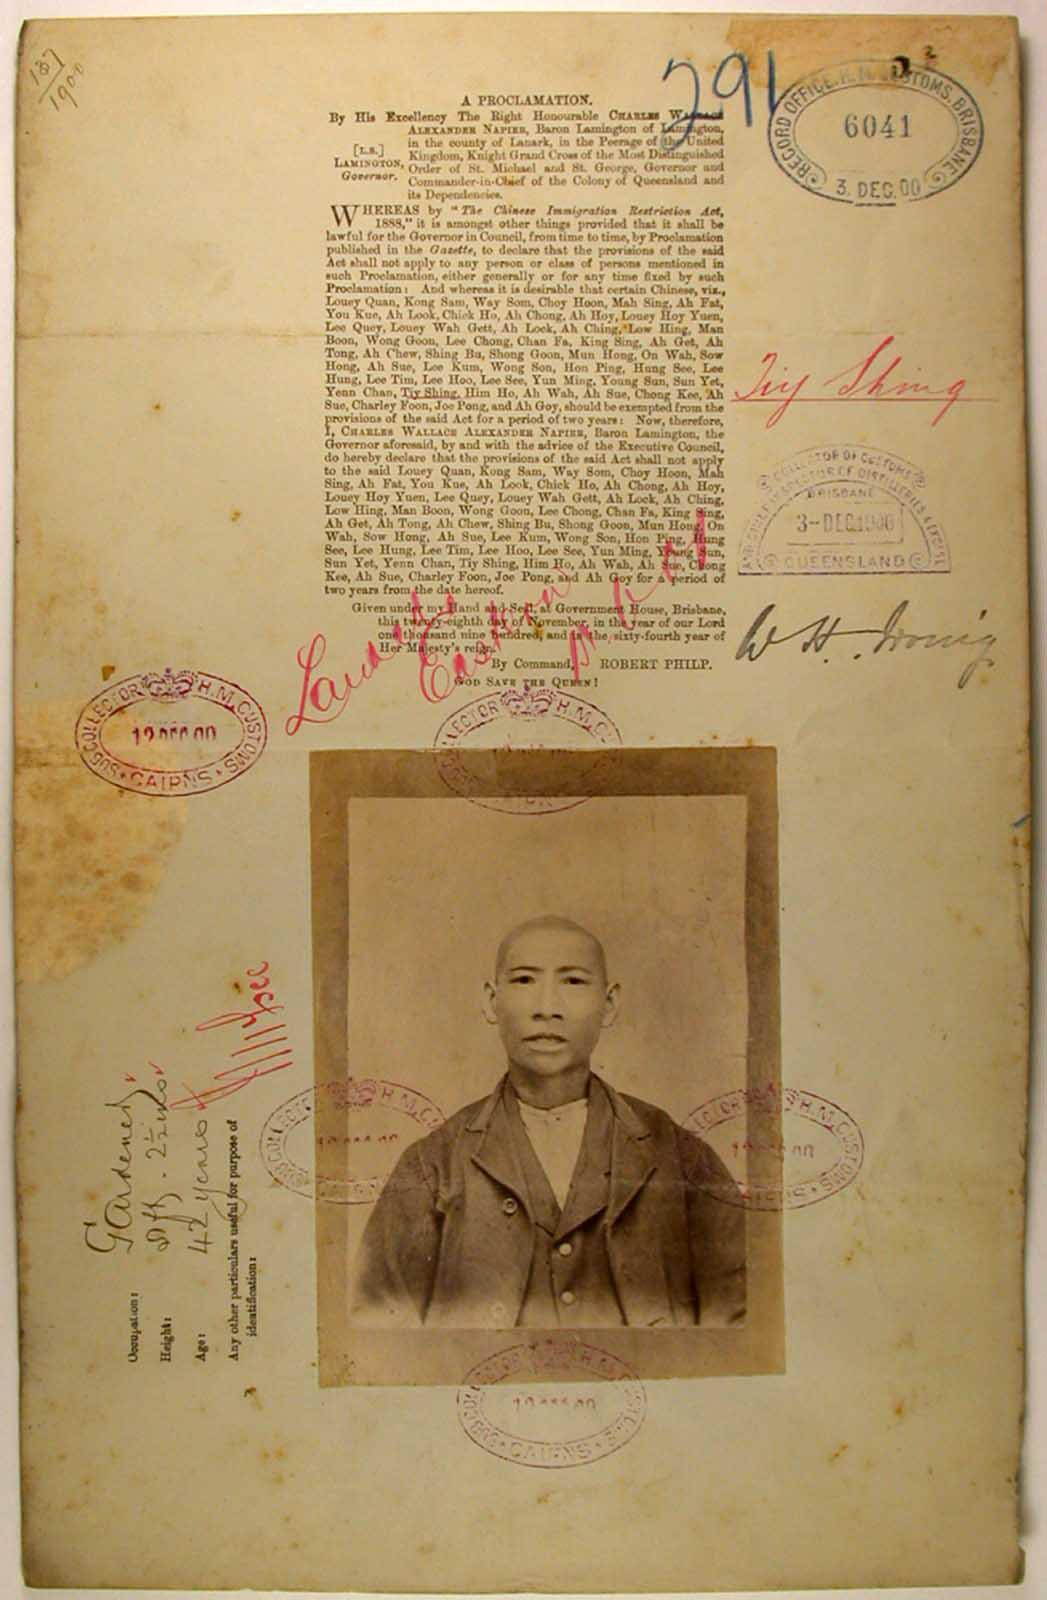 187
1900
291
RECORD OFFICE. H. M. CUSTOMS. BRISBANE
6041
3. DEC. 00
A PROCLAMATION.
By His Excellency The Right Honourable CHARLES WALLACE
ALEXANDER NAPIER, Baron Lamington of Lamington,
in the county of Lanark, in the Peerage of the United
Kingdom, Knight Grand Cross of the Most Distinguished
Order of St. Michael and St. George, Governor and
Commander-in-Chief of the Colony of Queensland and
its Dependencies.
[L.S.]
LAMINGTON,
Governor.
WHEREAS by "The Chinese Immigration Restriction Act,
1888," it is amongst other things provided that it shall be
lawful for the Governor in Council, from time to time, by Proclamation
published in the Gazette, to declare that the provisions of the said
Act shall not apply to any person or class of persons mentioned in
such Proclamation, either generally or for any time fixed by such
Proclamation: And whereas it is desirable that certain Chinese, viz.,
Louey Quan, Kong Sam, Way Som, Choy Hoon, Mah Sing, Ah Fat,
You Kue, Ah Look, Chick Ho, Ah Chong, Ah Hoy, Louey Hoy Yuen,
Lee Quey, Louey Wah Gett, Ah Lock, Ah Ching, Low Hing, Man
Boon, Wong Goon, Lee Chong, Chan Fa, King Sing, Ah Get, Ah
Tong, Ah Chew, Shing Bu, Shong Goon, Mun Hong, On Wah, Sow
Hong, Ah Sue, Lee Kum, Wong Son, Hon Ping, Hung See, Lee
Hung, Lee Tim, Lee Hoo, Lee See, Yun Ming, Young Sun, Sun Yet,
Yenn Chan, Tiy Shing, Him Ho, Ah Wah, Ah Sue, Chong Kee, Ah
Sue, Charley Foon, Joe Pong, and Ah Goy, should be exempted from the
provisions of the said Act for a period of two years: Now, therefore,
I, CHARLES WALLACE ALEXANDER NAPIER, Baron Lamington, the
Governor aforesaid, by and with the advice of the Executive Council,
do hereby declare that the provisions of the said Act shall not apply
to the said Louey Quan, Kong Sam, Way Som, Choy Hoon, Mah
Sing, Ah Fat, You Kue, Ah Look, Chick Ho, Ah Chong, Ah Hoy,
Louey Hoy Yuen, Lee Quey, Louey Wah Gett, Ah Lock, Ah Ching,
Low Hing, Man Boon, Wong Goon, Lee Chong, Chan Fa, King Sing,
Ah Get, Ah Tong, Ah Chew, Shing Bu, Shong Goon, Mun Hong, On
Wah, Sow Hong, Ah Sue, Lee Kum, Wong Son, Hon Ping, Hung
See, Lee Hung, Lee Tim, Lee Hoo, Lee See, Yun Ming, Young Sun,
Sun Yet, Yenn Chan, Tiy Shing, Him Ho, Ah Wah, Ah Sue, Chong
Kee, Ah Sue, Charley Foon, Joe Pong, and Ah Goy for a period of
two years from the date hereof.
Given under my Hand and Seal, at Government House, Brisbane,
this twenty-eighth day of November, in the year of our Lord
one thousand nine hundred, and in the sixty-fourth year of
Her Majesty's reign.
By Command, ROBERT PHILP.
GOD SAVE THE QUEEN!
Tiy Shing
COLLECTOR OF CUSTOMS
AND CHIEF INSPECTOR OF DISTILLERIES & EXCISE
BRISBANE
3-DEC.1900
QUEENSLAND
W. H. Irving
Eastern
SUB COLLECTOR H.M. CUSTOMS
12 DEC 00
CAIRNS
SUB COLLECTOR H.M. CUSTOMS
CAIRNS
SUB COLLECTOR H.M. CUSTOMS
12 DEC 00
SUB COLLECTOR H.M. CUSTOMS
12 DEC 00
CAIRNS
SUB COLLECTOR H.M. CUSTOMS
12 DEC 00
CAIRNS
Occupation: Gardener
Height: 5 ft. 2½ ins
Age: 42 years
Any other particulars useful for purpose of
identification: